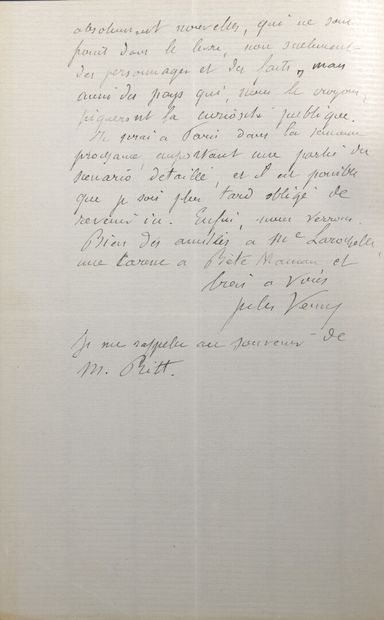 absolument nouvelles, qui ne sont
point dans le livre, non seulement
des personnages et des faits, mais
aussi des pays qui, nous le croyons,
piqueront la curiosité publique.
Je serai à Paris dans la semaine
prochaine, apportant une partie du
scenario détaillé, et il est possible
que je sois plus tard obligé de
revenir ici. Enfin, nous verrons.
Bien des amitiés à Me Larochelle,
une à Maman et
bien à vous
Jules Verne
Je me rappelle au souvenir de
M. Ritt.